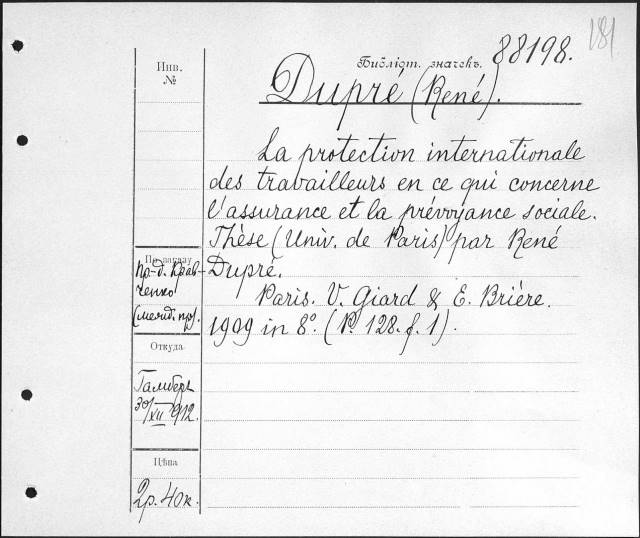 181
Библіот. значекъ. 88198.
Инв.
№
Dupré (René).
La protection internationale
des travailleurs en ce qui concerne
l'assurance et la prévoyance sociale.
Thèse (Univ. de Paris) par René
Dupré.
Paris. V. Giard & E. Brière.
1909 in 8º. (P. 128. f. 1).
По заказу
пр.-д. Крав-
ченко
(межд. пр.).
Откуда
Гамберъ
30/XII 912.
Цѣна
2р. 40к.